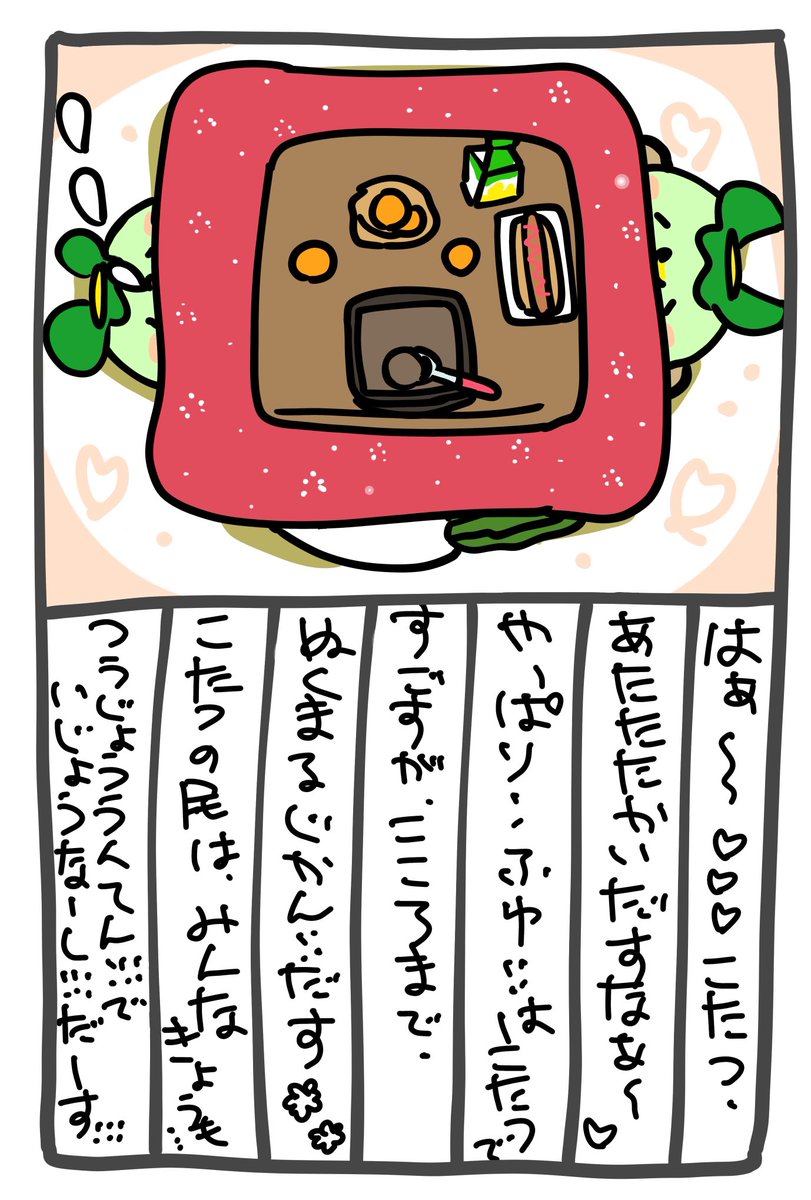 はぁ〜〜♡♡♡こたつ、
あたたたかいだすなぁ〜♡
やっぱり…ふゆ…はこたつで
すごすが、こころまで、
ぬくまるじかん…だす
こたつの民は、みんなきょうも…
つうじょううんてん…で
いじょうなーし…だーす…